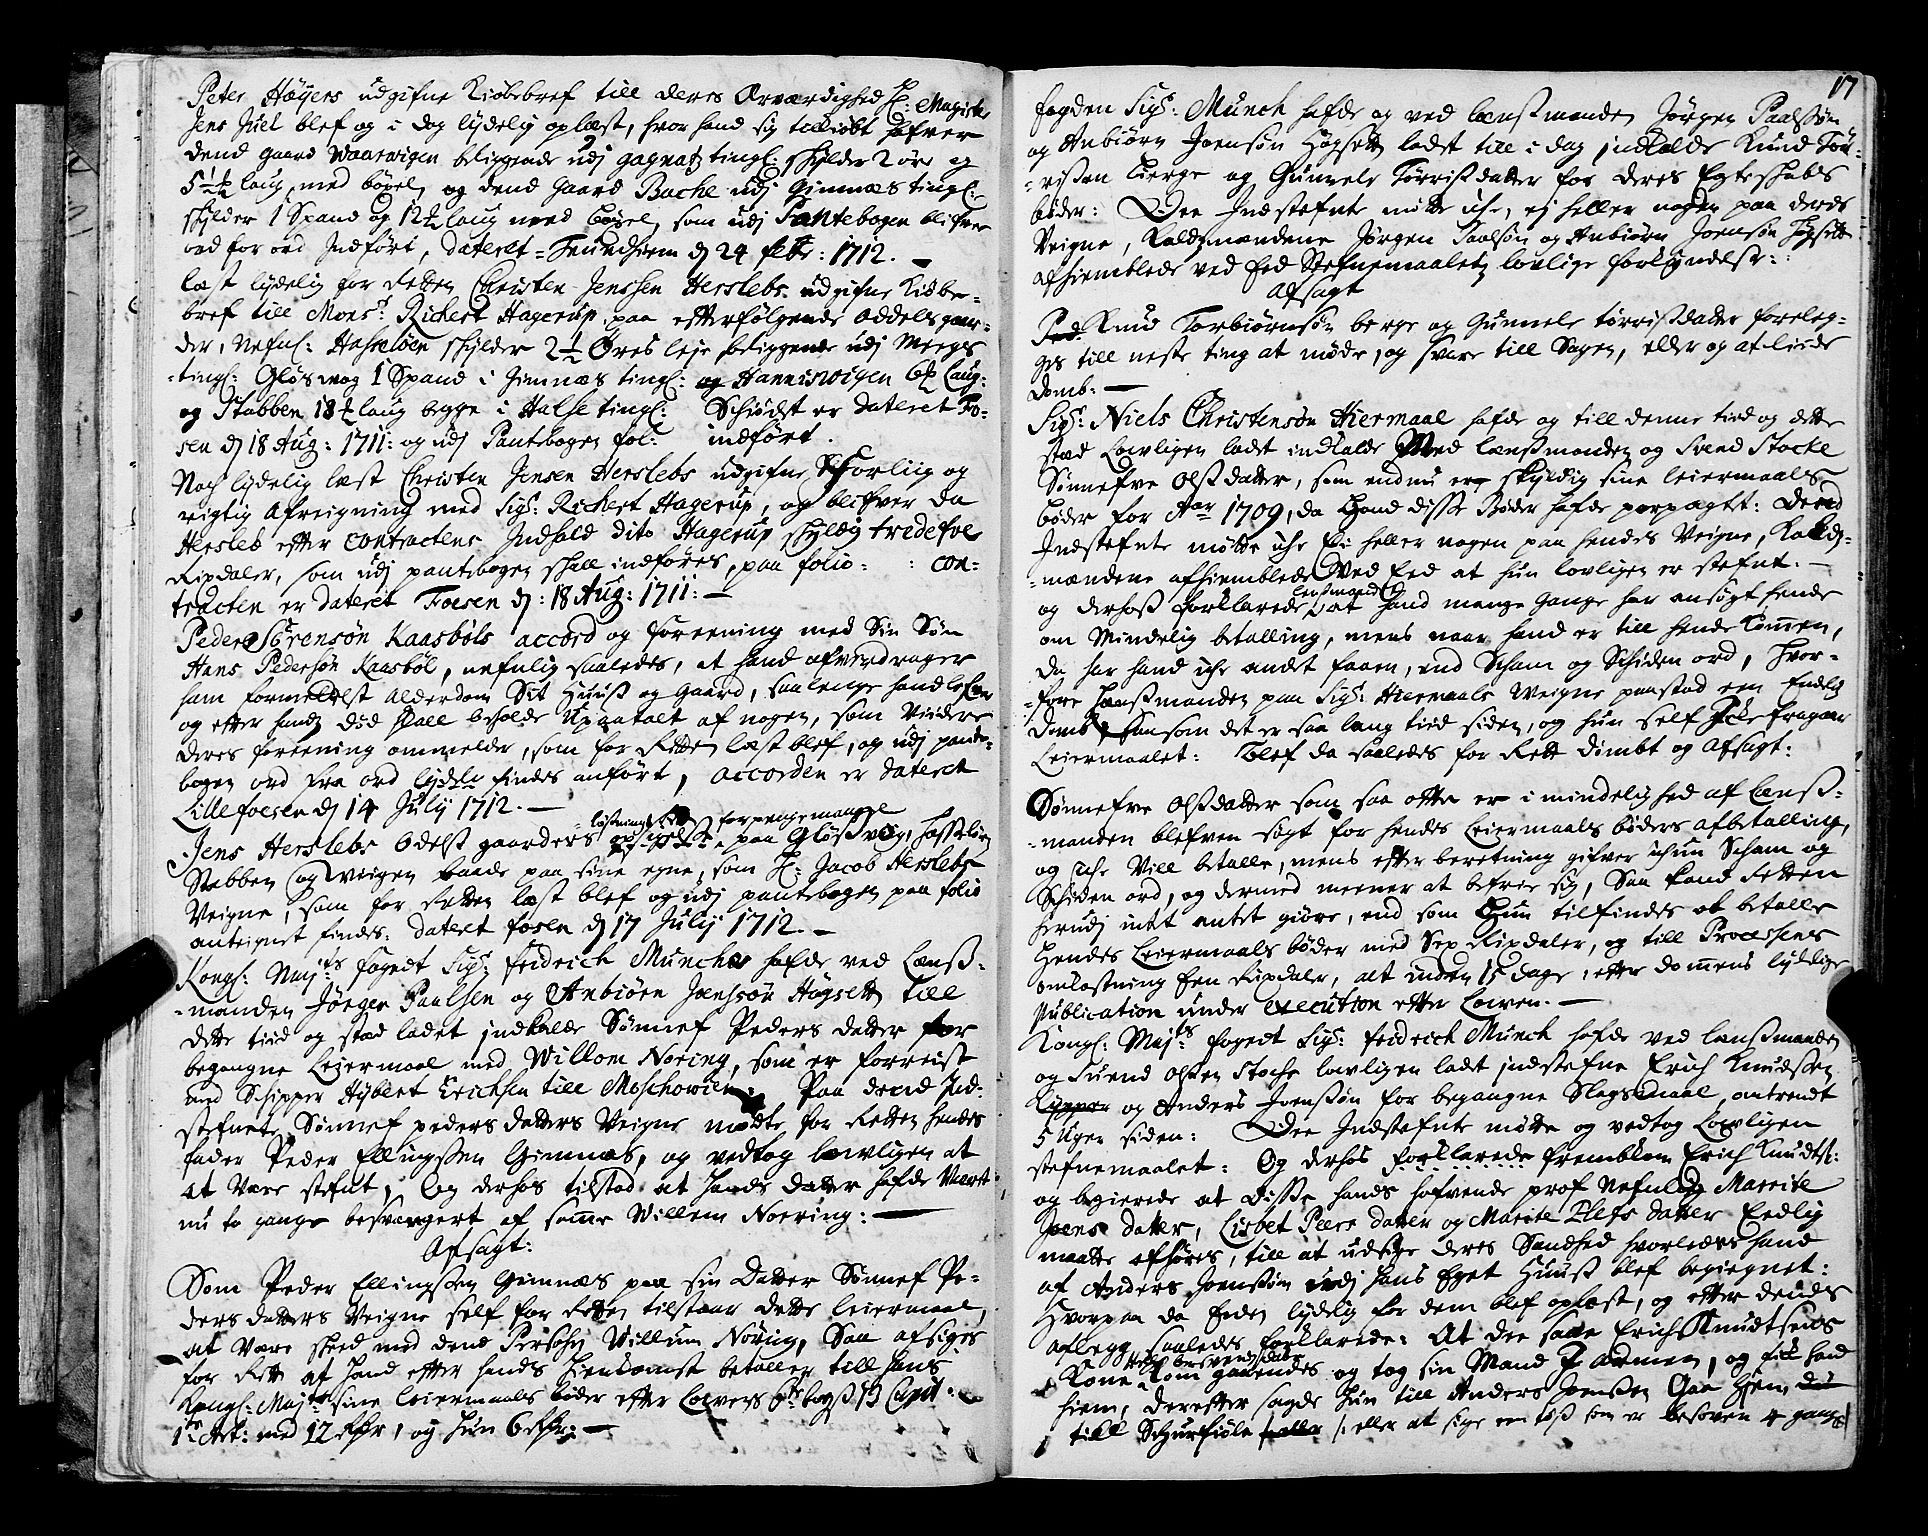 Peter Høyers udgifne Kiøbebref till deres Ærværdighed H: Magister
Jens Juel blef og i dag lydelig oplæst, hvor hand sig tilkiøbt hafver
dend gaard Waarvigen beliggende udj gagnat tingl: skylder 2 øre og
5½ laug med bøxel, og dend gaard Bache udj Gimnæs tingl:
skylder 1 Spand og 12½ laug med bøxel, som udj Pantebogen blifver
ord for ord Indført, dateret Trundhiem d 24 febr: 1712.
læst lydelig for Retten Christen Jenssen Herslebs udgifne Kiøbe-
bref till Mons: Richert Hagerup, paa efterfølgende oddels gaar-
der, Nefnl: Hasseløen skylder 2½ Øres leje beliggende udj
tingl: Gløsvog 1 Spand i Gimnæs tingl: og Hannisvigen laug:
og Stabben 18½ laug begge i Halse tingl: Schiødet er dateret Fo-
sen d 18 Aug: 1711: og udj Pantebogen fol: indført.
Noch lydelig læst Christen Jensen Herslebs udgifne Forliig og
rigtig Afreigning med Sigr: Richert Hagerup, og blifver da
Hersleb efter Contractens Indhold dito Hagerup skyldig tredefve
Rixdaler, som udj pantebogen skall indføres, paa folio: con-
tracten er dateret Foesen d: 18 Aug: 1711:
Peder Sørensøn Kaasbøls accord og foreening med Sin Søn
Hans Pedersøn Kaasbøl, nefnlig saaledes, at hand afverdrager
ham formedelst alderdom Sit Huuß og Gaard, saalenge hand lefver
og efter hands død skall beholde Upaatalt af nogen, som Viidere
deres foreening ommelder, som for Retten læst blef, og udj pante-
bogen ord fra ord lydelig findes anført, accorden er dateret
Lillefoesen d 14 July 1712.
løsnings forpengemangel
Jens Herslebs Odelß gaarders paa Gløsvog, Hasseløen
Stabben og wiigen baade paa sine egne, som H: Jacob Herslebs
Veigne, som for Retten læst blef og udj pantebogen paa folio
anteignet findes: dateret fosen d 17 Julij 1712.
Kongl: Majts foged Sigr: fridrich Munches hafde ved Lænß-
manden Jørgen Paulsen og Anbiørn Joenssøn Høgsett till
dette tiid og stad ladet indkalde Sønnef Peders datter for
begangne Leiermaal med Willom Noring, som er forreist
med Schipper Hybert Erichsen till Moschowien: Paa dend Ind-
stefnte Sønnef peders datters Veigne mødte for Retten hendes
fader Peder Ellingssen Gimnæs, og vedtog lovligen at
at være stefnt, Og derhos tilstod at hands datter hafde Været
nu to gange besvangert af samme Willem Noering:
Afsagt:
Som Peder Ellingssen Gimnæs paa sin Datter Sønnef Pe-
ders datters Veigne self for Retten tilstaar dette leiermaal,
at Være skeed med dend Persohn Willum Noring, Saa afsiges
for Rett at hand efter hands hiemkomst betaller till Hans
Kongl: Majts sine leiermaals bøder efter Lovens 6te bogß 13 Capit:
1te Art: med 12 Rdr, og hun 6 Rdr:
17
fogden Sigr: Munch hafde og ved lænßmanden Jørgen Paalssøn
og Anbiørn Joensøn Høgsett ladet till i dag indkalde Knud Tor-
rissen Berge og Gunnele Torrisdatter for deres Egteskabs
bøder: Dee Indstefnte mødte iche, ej heller nogen paa deres
Veigne, Kaldsmændene Jørgen Paalsøn og Anbiørn Joensøn Høgsett
afhiemblede ved Eed Stefnemaaletz lovlige forkyndelse:
Afsagt
Knud Torbiørnsøn berge og Gunnele torrisdatter foreleg-
ges till neste ting at møde, og svare till Sagen, eller og at liide
Domb:
Sigr: Niels Christensøn Hiermaal hafde og till denne tiid og dette
stæd Lovligen ladet indkalde Ved lænßmanden og Svend Stocke
Sønnefve Olsdatter, som endnu er skyldig sine leiermaals
bøder for Aar 1709, da Hand disse Bøder hafde forpagtet: Dend
Indstefnte mødte iche Ei heller nogen paa hendes Veigne, Kalds-
mændene afhiemblede Ved Eed at hun lovligen er stefnt.
lensmand
og derhoß forklarede, at Hand mange Gange har ansøgt hende
om Mindelig betalling, mens naar hand er till hende kommen,
da har hand iche andet faaen, end Scham og Schiden ord, Hvor-
fore Lænßmanden paa Sigr: Hiermaals Veigne paastod een Endlig
domb, saasom det er saa lang tiid siden, og hun self iche fragaar
Leiermaalet: Blef da saaledes for Rett dømbt og Afsagt:
Sønnefve Olsdatter som saa ofte er i mindelighed af Lænß-
manden blefven søgt for hendes Leiermaals bøders afbetalling,
og iche Vill betalle, mens efter beretning gifver ichun Scham og
Schiden ord, og dermed meener at befrie sig, Saa kand Retten
herudj intet andet giøre, end som Hun tilfindes at betalle
Hendes Leiermaals bøder med Sex Rixdaler, og till Processens
omkostning Een Rixdaler, alt inden 15 dage, efter domens lydelige
Publication under execution efter Loven.
Kongl: Majts foged Sigr: fridrich Munch hafde ved lænßmanden
og Svend Olsen Stoche lovligen ladet indstefne Erich Knudssen
Kypper og Anders Joenssøn for begangne Slagsmaal, omtrendt
5 Uger siden: Dee Indstefnte mødte og vedtog Lovligen
stefnemaalet: Og derhos forklarede fremkom Erich Knudts:
og begierede at disse hands hafvende prof Nefnlig Marrite
Joens datter, Lisbet Peers datter og Marite Elefs datter Eedlig
maatte afhøres, till at udsige deres Sandhed hvorledes hand
af Anders Joenssøn udj hans Eget Huuß blef begiegnet:
Hvorpaa da Eeden lydelig for dem blef oplæst, og efter dends
aflegg saaledes forklarede: At dee saae Erich Knudtsens
Kone Kom gaaendes og tog sin Mand I Armen, og fich hand
hiem, derefter sagde hun till Anders Joensen Gaa hiem, du
till Schurfiøle eller at sige een tøs som er besoven 4 gange